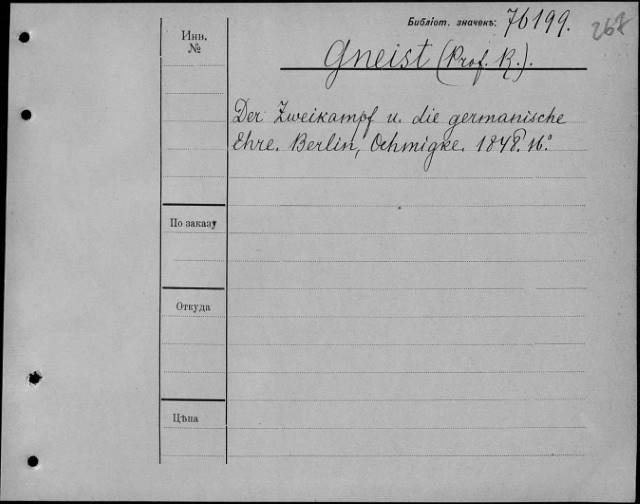 Библіот. значекъ: 76199.
267
Инв.
№
Gneist (Prof. R.).
Der Zweikampf u. die germanische
Ehre. Berlin, Oehmigke. 1848. 16.°
По заказу
Откуда
Цѣна